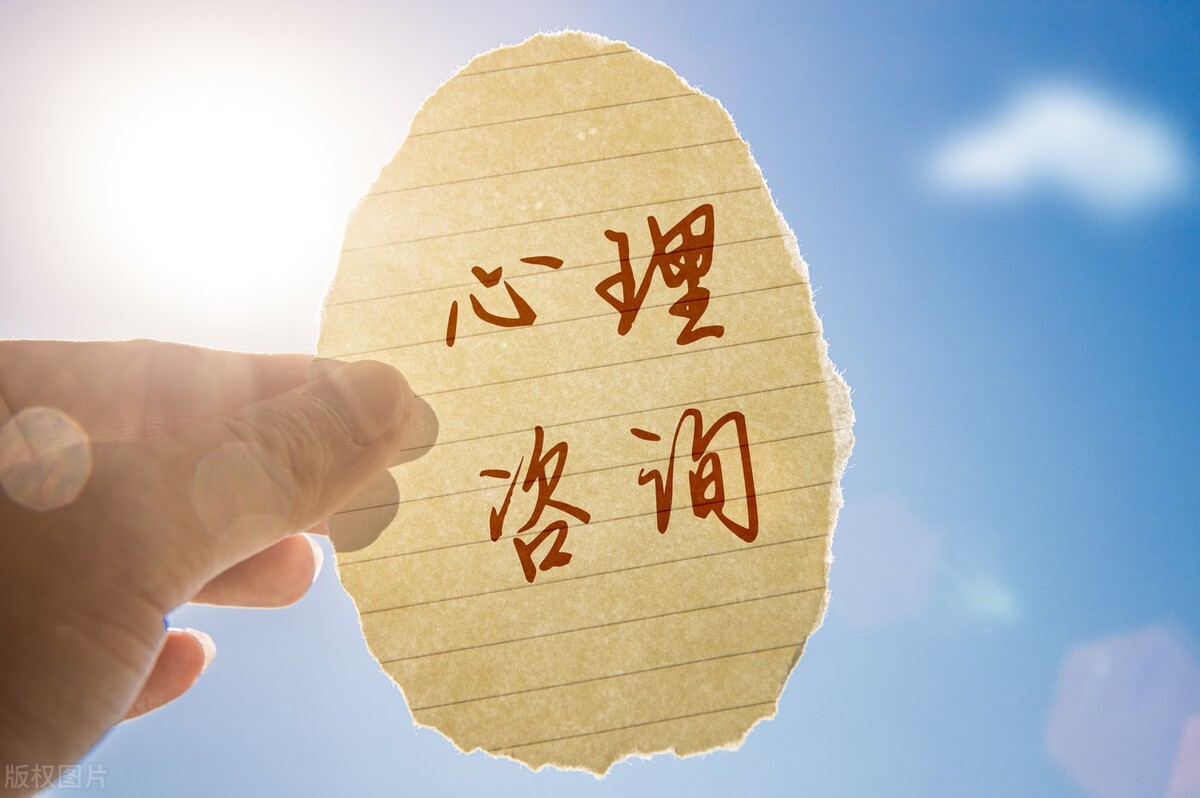 心理
咨询
版权图片